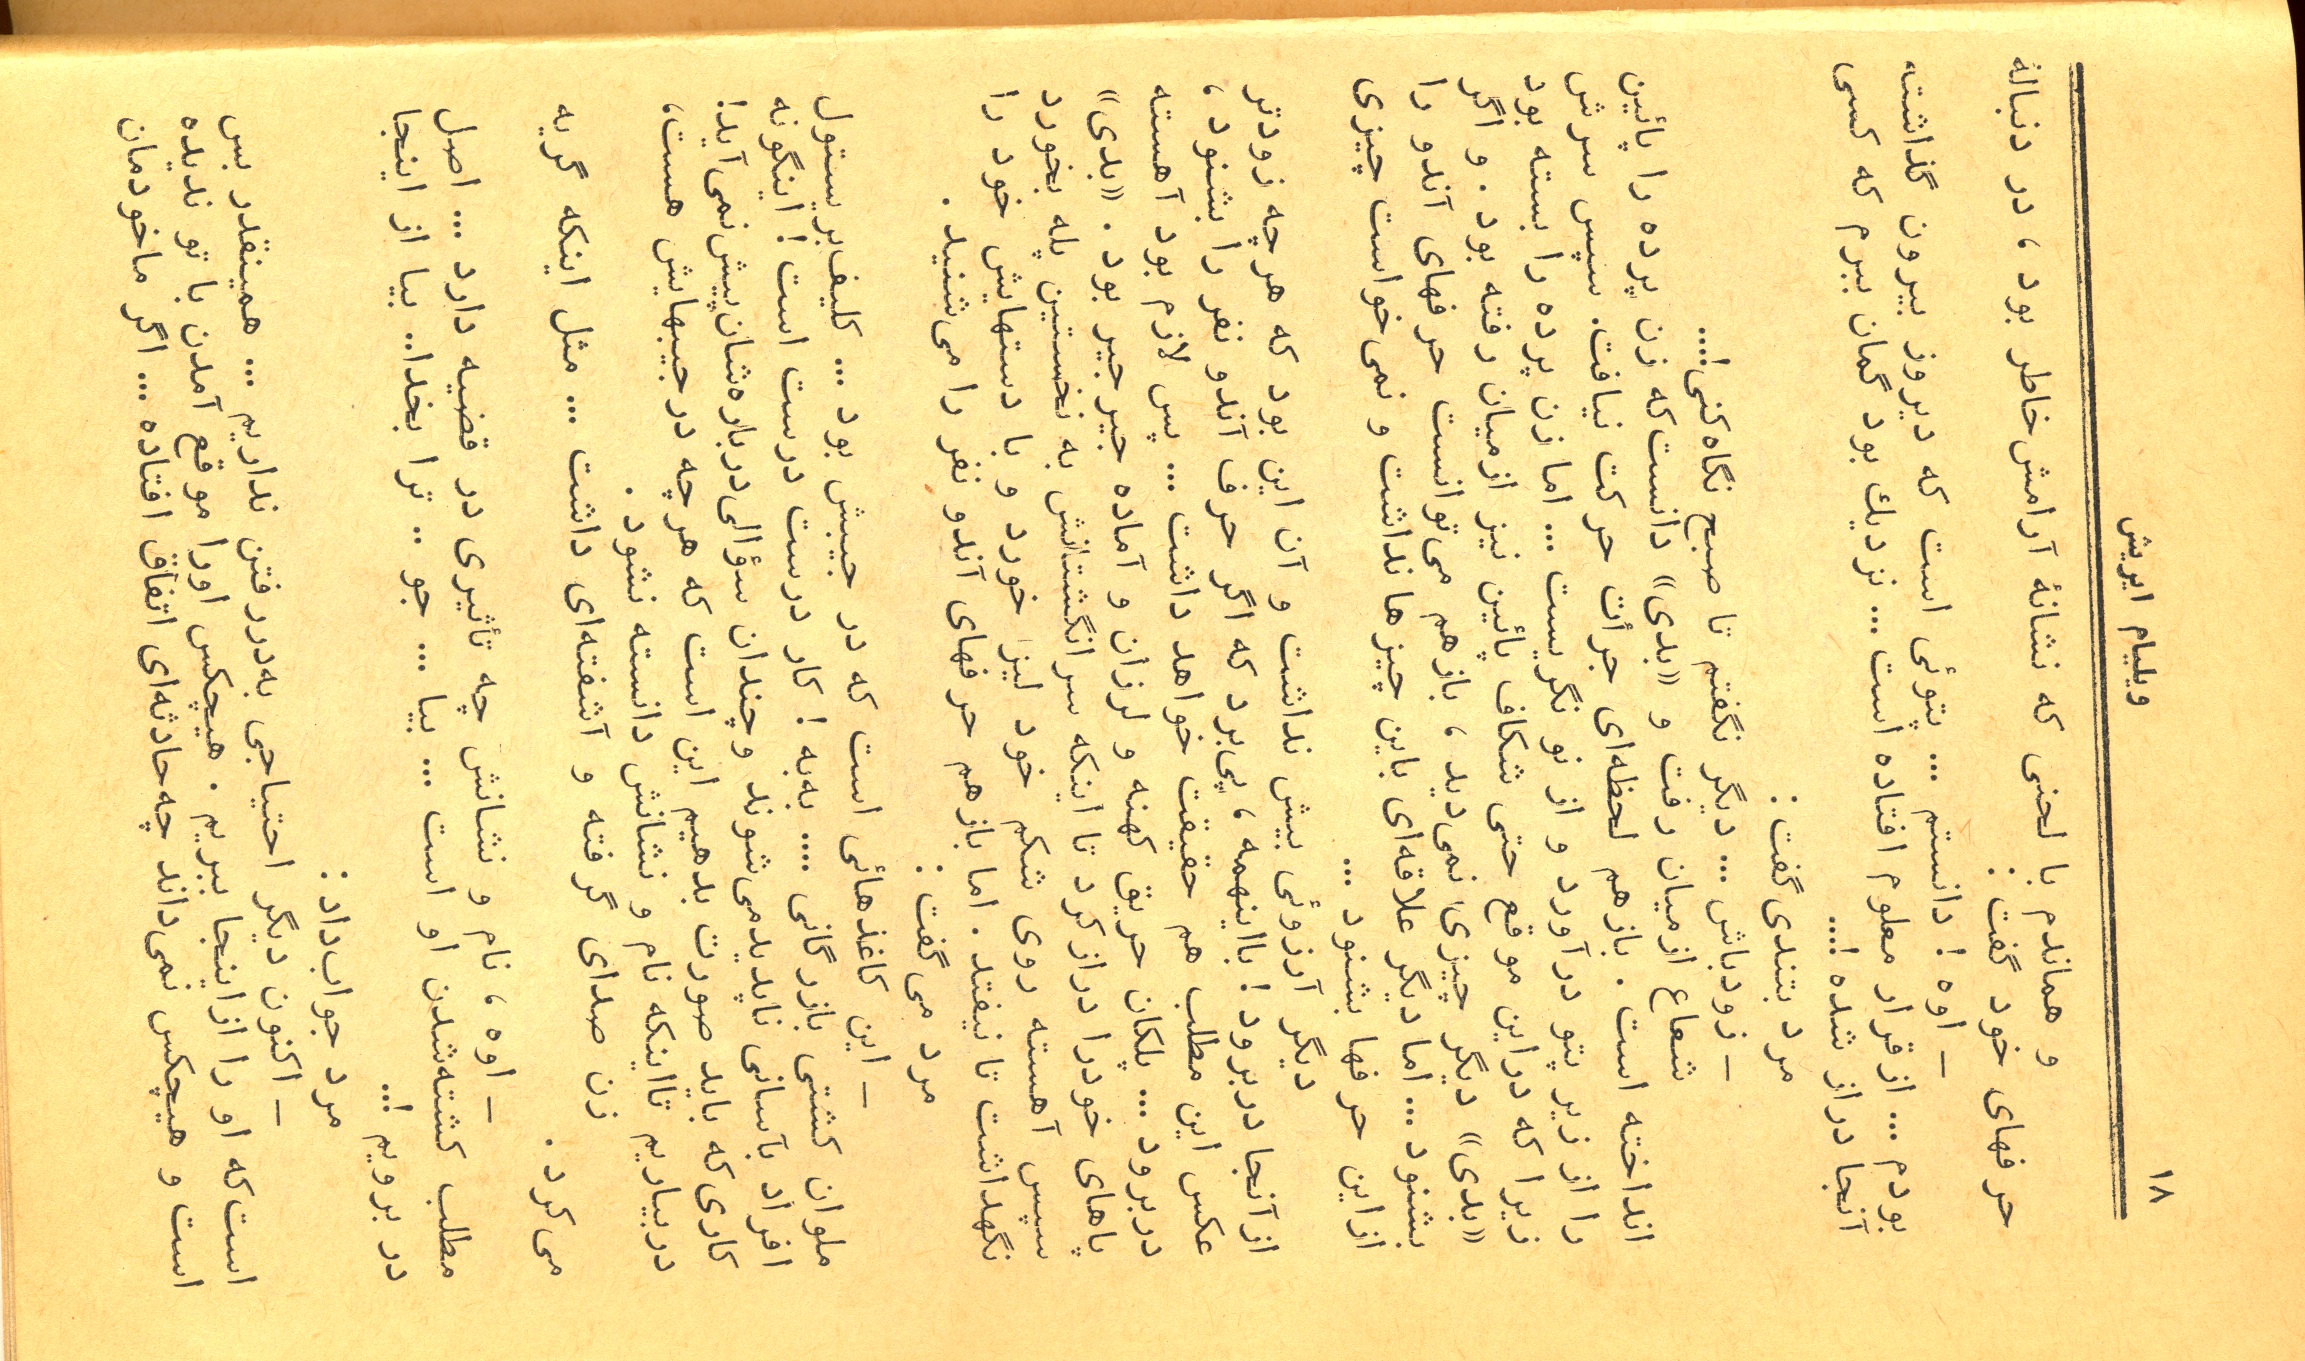 ۱۸
ویلیام ایریش
و هماندم با لحنی که نشانهٔ آرامش‌خاطر بود، در دنبالهٔ
حرفهای خود گفت :
— اوه ! دانستم ... پتوئی است که دیروز بیرون گذاشته
بودم ... ازقرار معلوم افتاده است ... نزدیك بود گمان ببرم که کسی
آنجا دراز شده !...
مرد بتندی گفت :
— زودباش ... دیگر نگفتم تا صبح نگاه کنی !...
شعاع ازمیان رفت و «بدی» دانست که زن پرده را پائین
انداخته است . بازهم لحظه‌ای جرأت حرکت نیافت. سپس سرش
را از زیر پتو درآورد و از نو نگریست ... اما زن پرده را بسته بود
زیرا که دراین موقع حتی شکاف پائین نیز ازمیان رفته بود . و اگر
«بدی» دیگر چیزی نمی‌دید، بازهم می‌توانست حرفهای آندو را
بشنود... اما دیگر علاقه‌ای باین چیزها نداشت و نمی‌خواست چیزی
ازاین حرفها بشنود ...
دیگر آرزوئی بیش نداشت و آن این بود که هرچه زودتر
ازآنجا دربرود ! بااینهمه، پی‌برد که اگر حرف آندو نفر را بشنود،
عکس این مطلب هم حقیقت خواهد داشت ... پس لازم بود آهسته
دربرود ... پلکان حریق کهنه و لرزان و آماده جیرجیر بود . «بدی»
پاهای خودرا دراز کرد تا اینکه سرانگشتانش به نخستین پله بخورد
سپس آهسته روی شکم خود لیز خورد و با دستهایش خود را
نگهداشت تا نیفتد . اما بازهم حرفهای آندو نفر را می‌شنید .
مرد می‌گفت :
— این کاغذهائی است که در جیبش بود ... کلیف‌بریستول
ملوان کشتی بازرگانی .... به‌به ! کار درست درست است ! اینگونه
افراد بآسانی ناپدیدمی‌شوند وچندان سؤالی‌درباره‌شان‌پیش‌نمی‌آید!
کاری که باید صورت بدهیم این است که هرچه درجیبهایش هست،
دربیاریم تااینکه نام و نشانش دانسته نشود .
زن صدای گرفته و آشفته‌ای داشت ... مثل اینکه گریه
می‌کرد .
— اوه، نام و نشانش چه تأثیری در قضیه دارد ... اصل
مطلب کشته‌شدن او است ... بیا ... جو .. ترا بخدا.. بیا از اینجا
در برویم !...
مرد جواب‌داد :
— اکنون دیگر احتیاجی به‌دررفتن نداریم ... همینقدر بس
است‌که او را ازاینجا ببریم . هیچکس اورا موقع آمدن با تو ندیده
است و هیچکس نمی‌داند چه‌حادثه‌ای اتفاق افتاده ... اگر ماخودمان